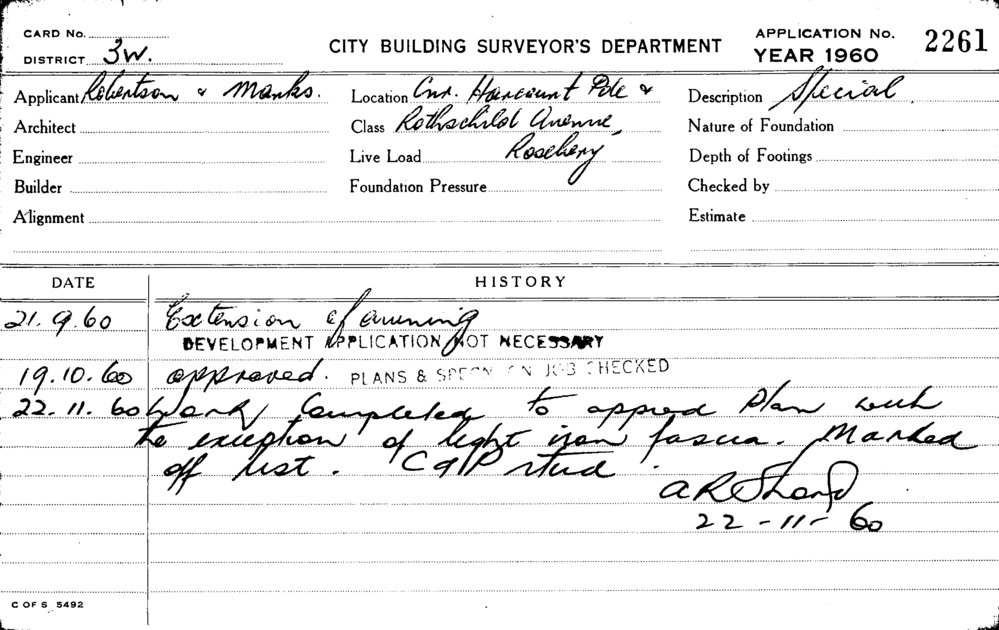 CARD No.
DISTRICT 3W.
CITY BUILDING SURVEYOR'S DEPARTMENT
APPLICATION No. 2261
YEAR 1960
Applicant Robertson & Marks.
Location Cnr. Harcourt Pde &
Description Special
Architect
Class Rothschild Avenue,
Nature of Foundation
Engineer
Live Load Rosebery
Depth of Footings
Builder
Foundation Pressure
Checked by
Alignment
Estimate
DATE HISTORY
21.9.60 Extension of awning
DEVELOPMENT APPLICATION NOT NECESSARY
19.10.60 approved. PLANS & SPECN ON JOB CHECKED
22.11.60 Work Completed to approd plan with
the exception of light iron fascia. Marked
off list.
22-11-60
C OF S 5492